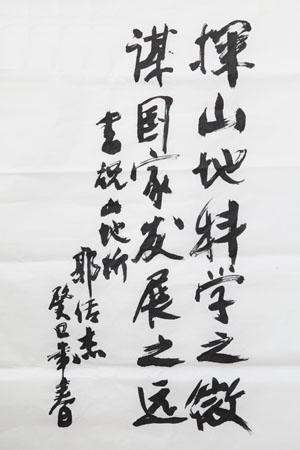 探山地科学之微
谋国家发展之远
书祝山地所
癸巳年春